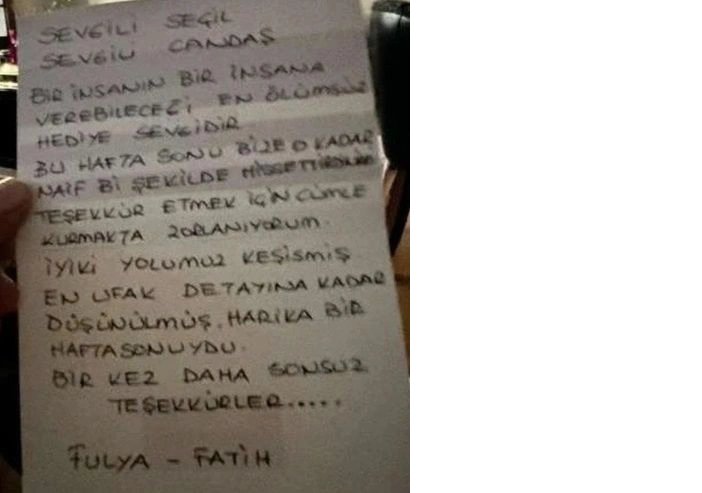 SEVGİLİ SEÇİL
SEVGİLİ CANDAŞ
BİR İNSANIN BİR İNSANA
VEREBİLECEĞİ EN ÖLÜMSÜZ
HEDİYE SEVGİDİR.
BU HAFTA SONU BİZE O KADAR
NAİF Bİ ŞEKİLDE HİSSETTİRDİNİZ
TEŞEKKÜR ETMEK İÇİN CÜMLE
KURMAKTA ZORLANIYORUM.
İYİKİ YOLUMUZ KEŞİSMİŞ
EN UFAK DETAYINA KADAR
DÜŞÜNÜLMÜŞ, HARİKA BİR
HAFTASONUYDU.
BİR KEZ DAHA SONSUZ
TEŞEKKÜRLER.....
FULYA - FATİH